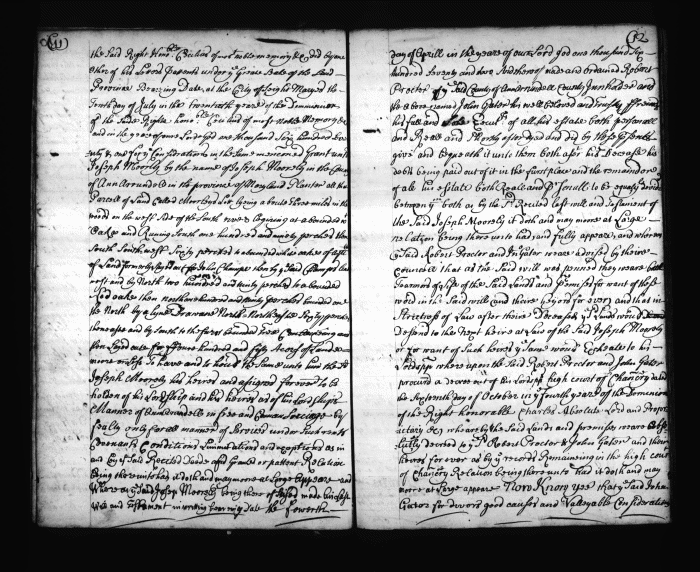 (11)
the Said Right Hon.ble Cecilius of most noble memory &c did by one
other of his Letters Patents under ye Great Seale of the Said
Province Bearing Date at the City of Saint Maryes the
Tenth day of July in the twentieth yeare of the Dominion
of the Said Right honble Cecilius of most Noble Memory &c
and in the yeare of our Lord God one thousand Six hundred
and for ye Considerations in the Same mencioned Grant unto
Joseph Moorely by the name of Joseph Moorely in the County
of Ann Arrundell in the province of Maryland Planter all that
Parcell of Land Called Moorely's Lott lying about three miles in the
woods on the west Side of the South River Begining at a bounded
Oake and Runing South one hundred and ninty perches then
South Southwest Sixty perches to a bounded oake of
of Land formerly laid out for John Champe then by ye said Champs land
west and by North two hundred and ninty perches to a bounded
Red oake then north one hundred and ninty perches bounded on
the North by a Line Drawne North Northeast Sixty perches
thence east and by South to the first bounded Tree Containing and
then Layed out for one hundred and fifty Acres of Land
more or less To have and to hold the Same unto him the Sd
Joseph Moorely his heires and assignes forever to be
holden of his Lordship and his heires as of his Lordships
Mannor of Ann Arrundell in free and Comon Soccage by
fealty only for all manner of Services under Such rents
Covenants Conditions Limmitations and exceptions as in
and by ye Said Recited Deede and Grant or pattent Relation
being thereunto had it doth and may more at Large Appeare and
Whereas ye Said Joseph Moorely being thereof Seized made his last
Will and Testament in writing bearing date the fowerth
(12
day of Aprill in the yeare of our Lord god one thousand Six
hundred Seventy and two and thereof made and ordained Robert
Proctor of ye Said County of Ann Arrundell County Innholder and
the above named John Gater his welbeloved and trusty ffriends
his full and Sole Execut.rs of all his estate both personall
and Reall and Shortly after dyed and did by those
give and bequeath it unto them both after his Decease his
debts being paid out of it in the first place and the remainder
of all his estate both Reall and Personall to be equally devided
between ym both as by the Sd Recited last will and Testament of
the Said Joseph Moorely it doth and may more at Large
relation being there unto had and fully appeare and whereas
ye Said Robert Proctor and Jn.o Gater weare advised by theire
Councell that as the Said will was penned they weare but
Tearmed of Life of the Said Lands and Premises for want of those
word in the Said will and theire heyers for ever and that in
Strictness of Law after theire Decease ye Sd Lands would
desend to the Next heire at Law of the Said Joseph Moorely
or for want of Such heires ye Same would Escheate to his
Lordspp where upon the Said Robert Proctor and John Gater
procured a decree out of his Lordspps high Court of Chancery dated
the Sixteenth day of October in ye fourth yeare of the Dominion
of the Right honorable Charles Absolute Lord and Propri
etary &c whereby the Said Lands and premises weare abso
lutely decreed to ye Sd Robert Proctor & John Gater and their
heires for ever as by ye records Remaineing in the high Court
of Chancery Relation being there unto had it doth and may
more at Large appeare Now Know yee that ye Said John
Gater for divers good causes and Valluyable Consideration